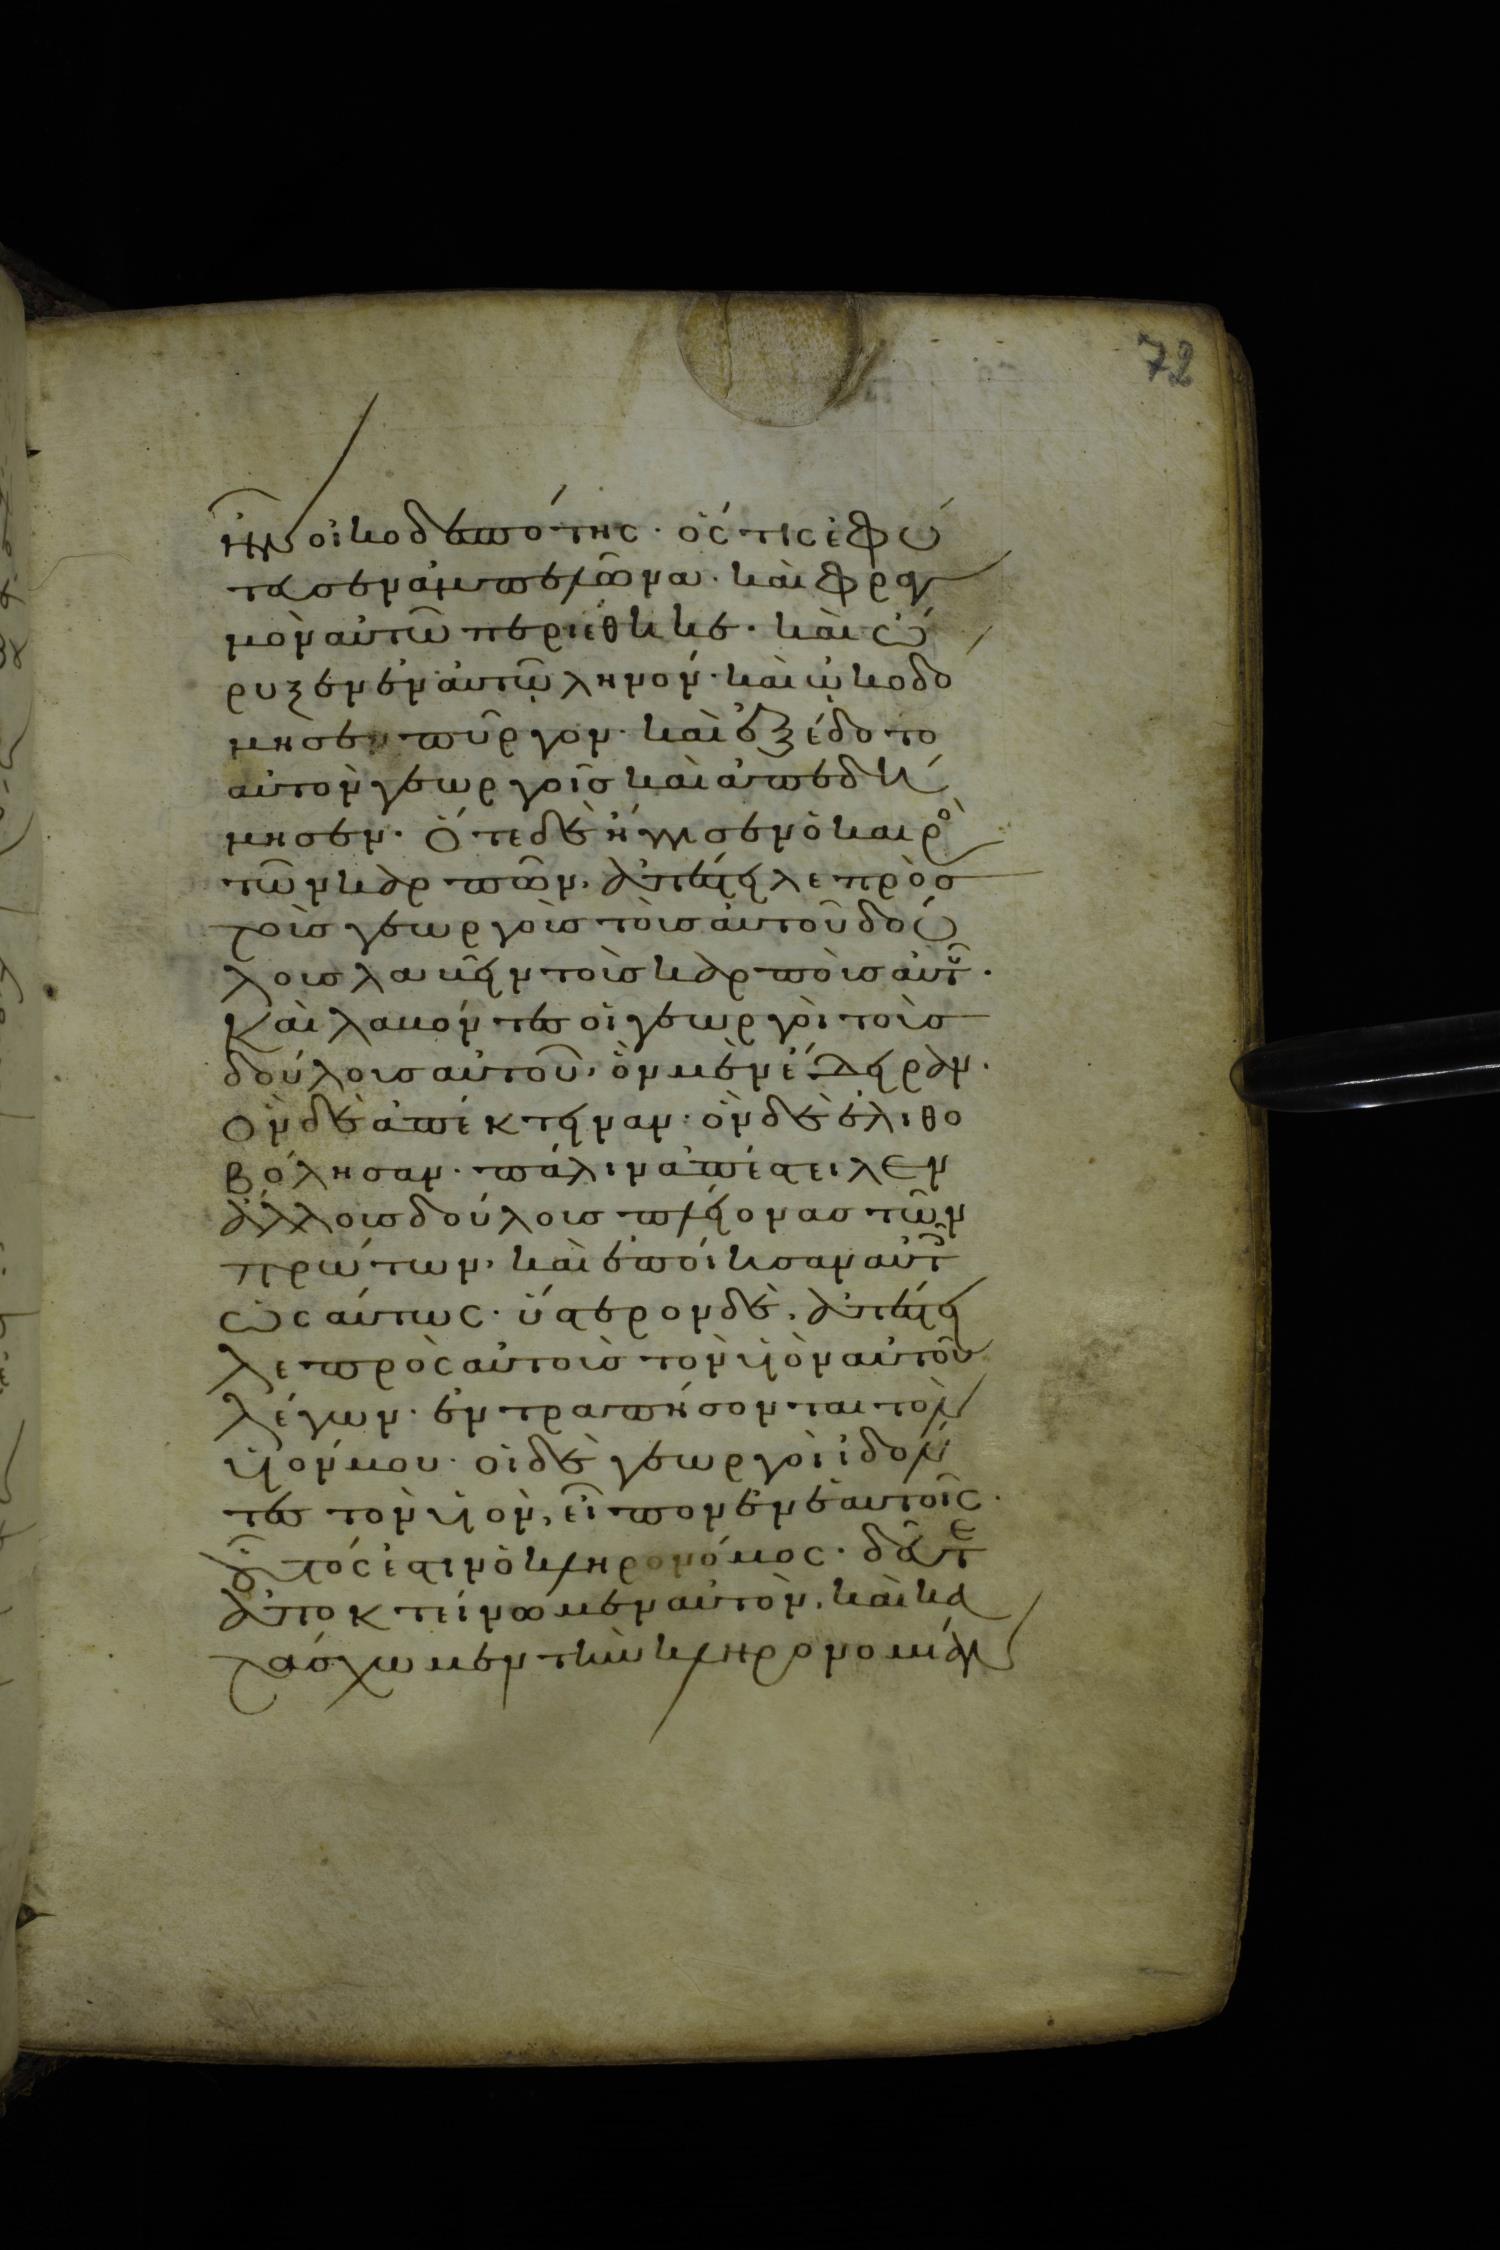 72
ἦν οἰκοδεσπότης· ὅστις ἐφύ
τευσεν ἀμπελῶνα· καὶ φραγ
μὸν αὐτῶ περιέθηκε· καὶ ὤ
ρυξεν ἐν αὐτῷ ληνόν· καὶ ὠκοδό
μησεν πῦργον· καὶ ἐξέδοτο
αὐτὸν γεωργοῖς καὶ ἀπεδή
μησεν· Ὅτε δὲ ἤγγισεν ὁ καιρὸ
τῶν καρπῶν, ἀπέστειλε πρὸς
τοὶς γεωργοὶς τοὶς αὐτοῦ δού
λοις λαβεῖν τοὶς καρποὶς αὐτοῦ·
Καὶ λαβόντες οἱ γεωργοὶ τοὶς
δούλοις αὐτοῦ, ὃν μὲν ἔδειραν·
Ὃν δὲ ἀπέκτειναν· ὃν δὲ ἐλιθο
βόλησαν· πάλιν ἀπέστειλεν
ἄλλοις δούλοις πλείονας τῶν
πρώτων, καὶ ἐποίησαν αὐτοῖ
ὡσαύτως· ὕστερον δὲ, ἀπέστει
λε πρὸς αὐτοὶς τὸν υἱὸν αὐτοῦ
λέγων· ἐντραπήσονται τὸν
υἱόν μου· οἱ δὲ γεωργοὶ ἰδόν
τες τὸν υἱὸν, εἶπον ἐν ἑαυτοῖς·
οὗτός ἐστιν ὁ κληρονόμος· δεῦτε
ἀποκτείνωμεν αὐτὸν, καὶ κα
τάσχωμεν τὴν κληρονομίαν